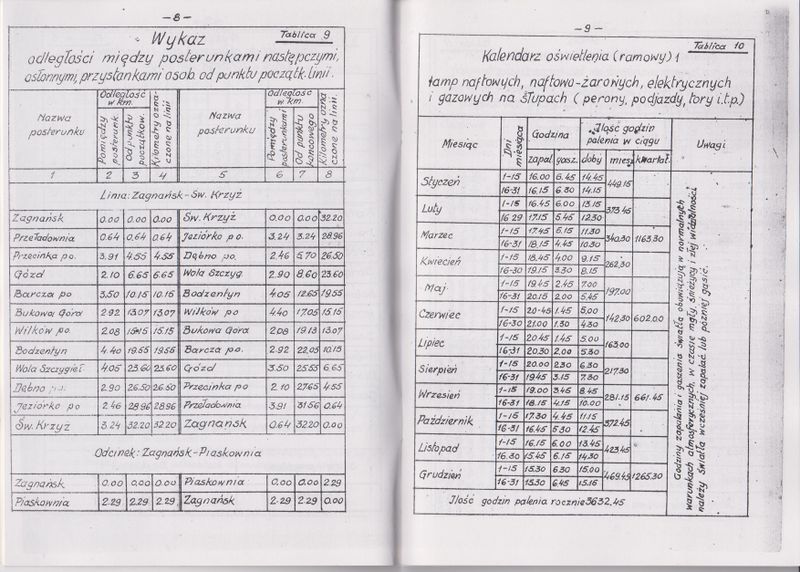 — 8 —
Tablica 9
Wykaz
odległości między posterunkami następczymi,
osłonnymi, przystankami osob. od punktu początk. linii.
Nazwa posterunku | Odległość w km. | Kilometry ozna-czone na linii | Nazwa posterunku | Odległość w km | Kilometry ozna-czone na linii.
Pomiędzy posterunk. | Od punktu początkow. | Pomiędzy posterunkami | Od punktu końcowego
1 2 3 4 5 6 7 8
Linia: Zagnańsk - Św. Krzyż
Zagnańsk 0.00 0.00 0.00 Św. Krzyż 0.00 0.00 32.20
Przeładownia 0.64 0.64 0.64 Jeziórko po. 3.24 3.24 28.96
Przecinka po. 3.91 4.55 4.55 Dębno po. 2.46 5.70 26.50
Gózd 2.10 6.65 6.65 Wola Szczyg 2.90 8.60 23.60
Barcza po 3.50 10.15 10.15 Bodzentyn 4.05 12.65 19.55
Bukowa Góra 2.92 13.07 13.07 Wilków po 4.40 17.05 15.15
Wilków po. 2.08 15.15 15.15 Bukowa Góra 2.08 19.13 13.07
Bodzentyn 4.40 19.55 19.55 Barcza po. 2.92 22.05 10.15
Wola Szczygieł 4.05 23.60 23.60 Gózd 3.50 25.55 6.65
Dębno po. 2.90 26.50 26.50 Przecinka po 2.10 27.65 4.55
Jeziórko po 2.46 28.96 28.96 Przeładownia 3.91 31.56 0.64
Św. Krzyż 3.24 32.20 32.20 Zagnańsk 0.64 32.20 0.00
Odcinek: Zagnańsk - Piaskownia
Zagnańsk 0.00 0.00 0.00 Piaskownia 0.00 0.00 2.29
Piaskownia 2.29 2.29 2.29 Zagnańsk 2.29 2.29 0.00
— 9 —
Tablica 10
Kalendarz oświetlenia (ramowy) 1
lamp naftowych, naftowo-żarowych, elektrycznych
i gazowych na słupach (perony, podjazdy, tory i.t.p.)
Miesiąc | Dni miesiąca | Godzina | Ilość godzin palenia w ciągu | Uwagi
zapal. gasz. doby mies. kwartał.
Styczeń 1-15 16.00 6.45 14.45 449.15
16-31 16.15 6.30 14.15
Luty 1-15 16.45 6.00 13.15 373.45
16 29 17.15 5.45 12.30
Marzec 1-15 17.45 5.15 11.30 340.30 1163.30
16-31 18.15 4.45 10.30
Kwiecień 1-15 18.45 4.00 9.15 262.30
16-30 19.15 3.30 8.15
Maj 1-15 19.45 2.45 7.00 197.00
16-31 20.15 2.00 5.45
Czerwiec 1-15 20.45 1.45 5.00 142.30 602.00
16-30 21.00 1.30 4.30
Lipiec 1-15 20.45 1.45 5.00 163.00
16-31 20.30 2.00 5.30
Sierpień 1-15 20.00 2.30 6.30 217.30
16-31 19.45 3.15 7.30
Wrzesień 1-15 19.00 3.45 8.45 281.15 661.45
16-31 18.15 4.15 10.00
Październik 1-15 17.30 4.45 11.15 372.45
16-31 16.45 5.30 12.45
Listopad 1-15 16.15 6.00 13.45 423.45
16.30 15.45 6.15 14.30
Grudzień 1-15 15.30 6.30 15.00 469.45 1265.30
16-31 15.30 6.45 15.15
Godziny zapalania i gaszenia światła obowiązują w normalnych
warunkach atmosferycznych, w czasie mgły, śnieżycy i złej widzialności
należy światła wcześniej zapalać lub później gasić.
Ilość godzin palenia rocznie 3632.45